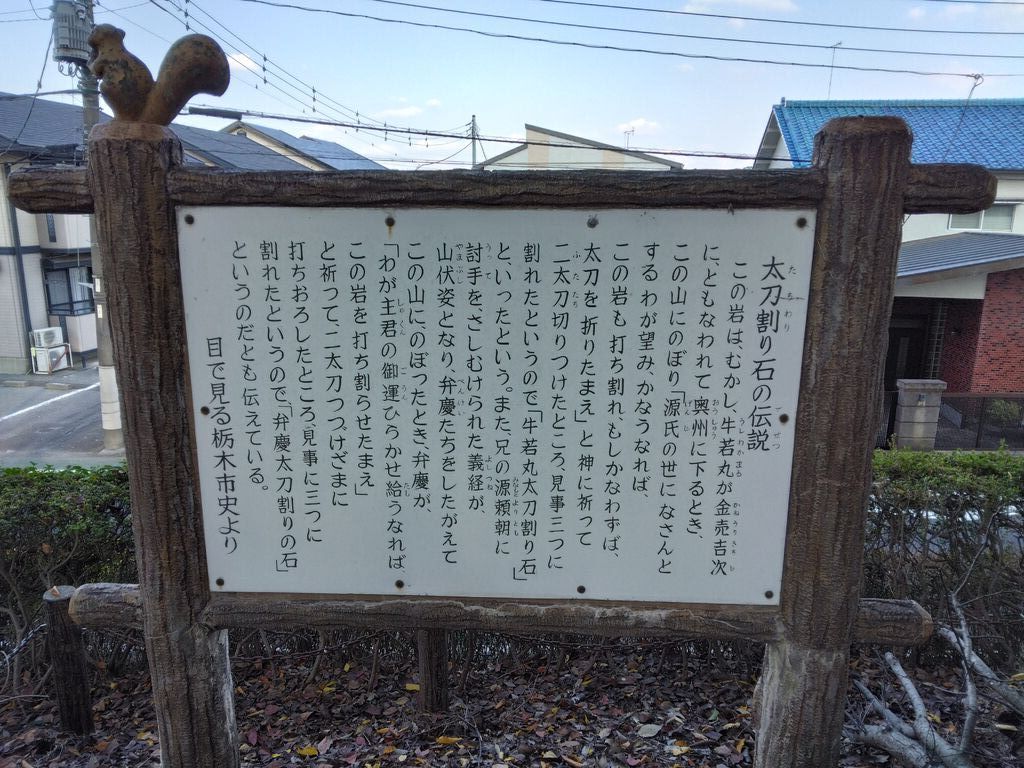 太刀割り石の伝説
この岩は、むかし、牛若丸が金売吉次
に、ともなわれて奥州に下るとき、
この山にのぼり「源氏の世になさんと
する わが望み、かなうなれば、
この岩も 打ち割れ、もしかなわずば、
太刀を 折りたまえ」と神に祈って
二太刀切りつけたところ、見事三つに
割れたというので「牛若丸太刀割り石」
と、いったという。また、兄の源頼朝に
討手を、さしむけられた義経が、
山伏姿となり、弁慶たちをしたがえて
この山に、のぼったとき、弁慶が、
「わが主君の御運ひらかせ給うなれば、
この岩を 打ち割らせたまえ」
と祈って、二太刀つづけざまに
打ちおろしたところ、見事に三つに
割れたというので、「弁慶太刀割りの石」
というのだとも伝えている。
目で見る栃木市史より